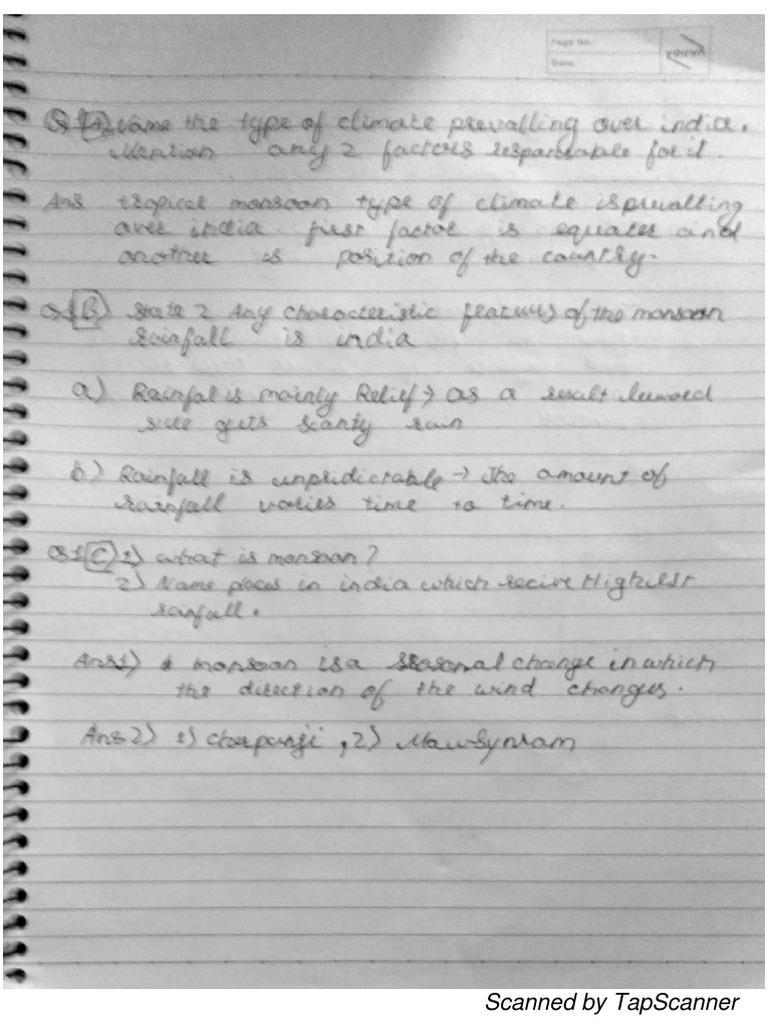 Page No.
Date
Youva
Q1(A) Name the type of climate prevalling over india.
Mention any 2 factors responsable for it.
Ans tropical monsoon type of climate is prevalling
over india. first factor is equater and
another is position of the country.
Q1(B) State 2 Any characteristic features of the monsoon
rainfall is india
a) Rainfal is mainly Relief → as a result leeward
side gets scanty rain
b) Rainfall is unpridictable → The amount of
rainfall varies time to time.
Q1(C) 1) what is monsoon?
2) Name places in india which recive Highest
rainfall.
Ans1) monsoon is a seasonal change in which
the direction of the wind changes.
Ans 2) 1) Cherpunji, 2) Mawsynram
Scanned by TapScanner